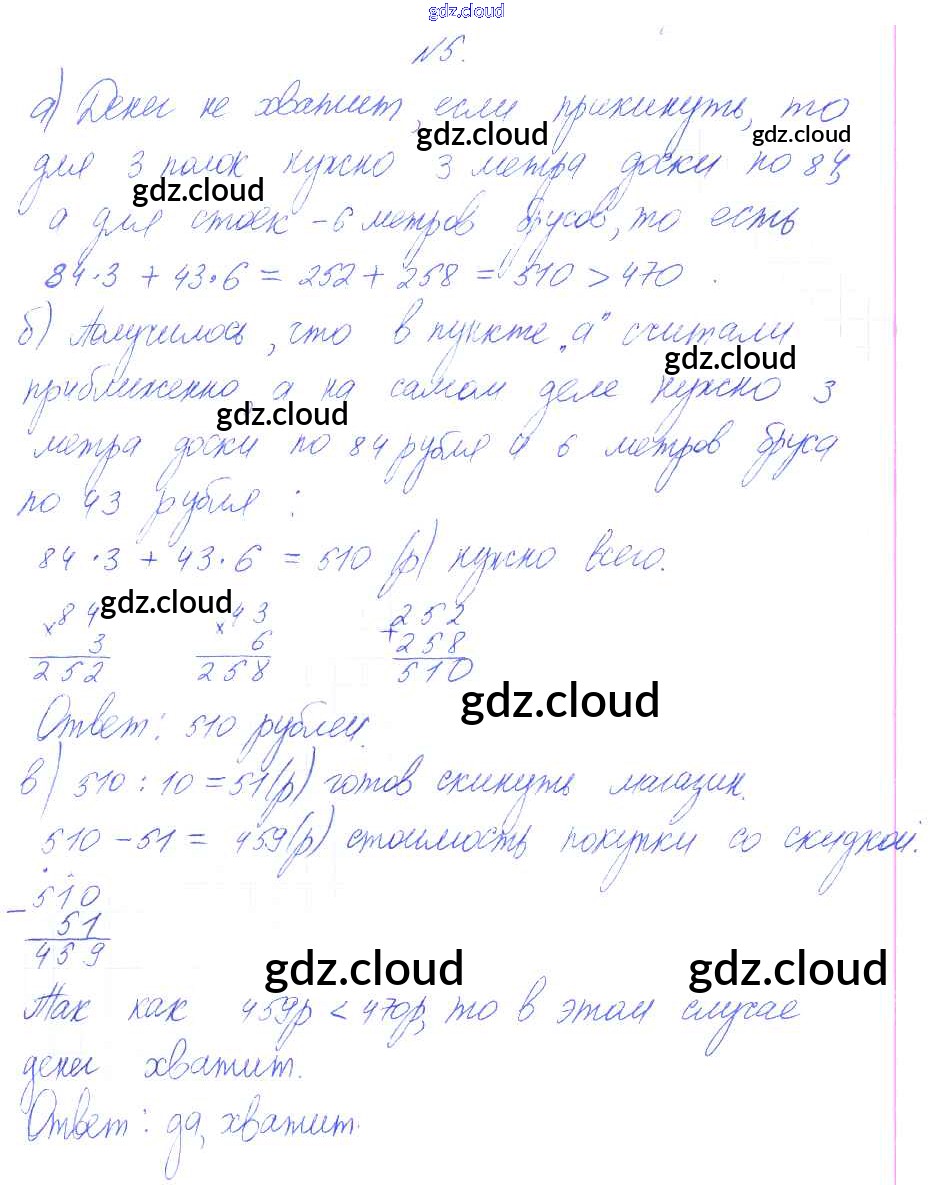 gdz.cloud
№5.
а) Денег не хватит, если прикинуть, то
gdz.cloud gdz.cloud
для 3 полок нужно 3 метра доски по 84,
gdz.cloud
а для стоек - 6 метров брусов, то есть
84·3 + 43·6 = 252 + 258 = 510 > 470.
б) Получилось, что в пункте „а" считали
gdz.cloud
приближенно, а на самом деле нужно 3
gdz.cloud
метра доски по 84 рубля и 6 метров бруса
по 43 рубля:
84·3 + 43·6 = 510 (р) нужно всего.
gdz.cloud
×84 ×43 +252
3 6 258
252 258 510
gdz.cloud
Ответ: 510 рублей.
в) 510 : 10 = 51(р) готов скинуть магазин.
510 - 51 = 459(р) стоимость покупки со скидкой.
-510
51
459
gdz.cloud gdz.cloud
Так как 459р < 470р, то в этом случае
денег хватит.
Ответ: да, хватит.